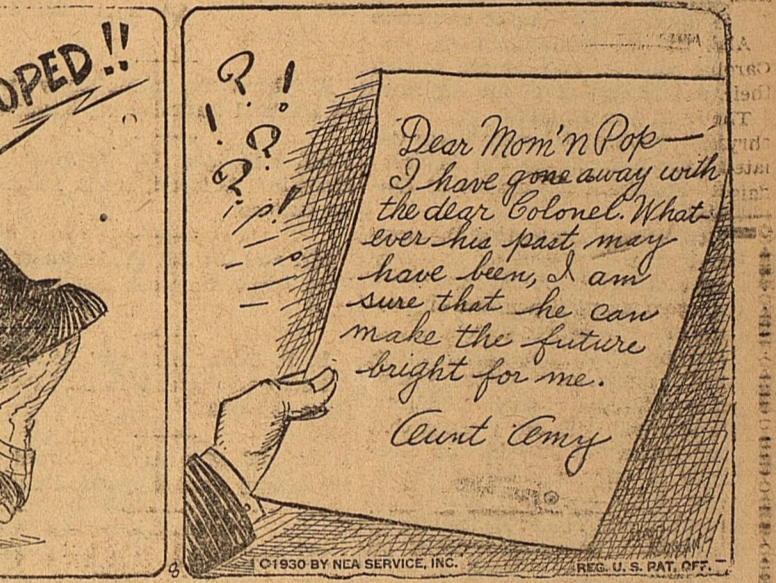 OPED!!
? !
! ?
?
Dear Mom'n Pop—
I have gone away with
the dear Colonel. What-
ever his past may
have been, I am
sure that he can
make the future
bright for me.
Aunt Amy
8
©1930 BY NEA SERVICE, INC.
REG. U. S. PAT. OFF.